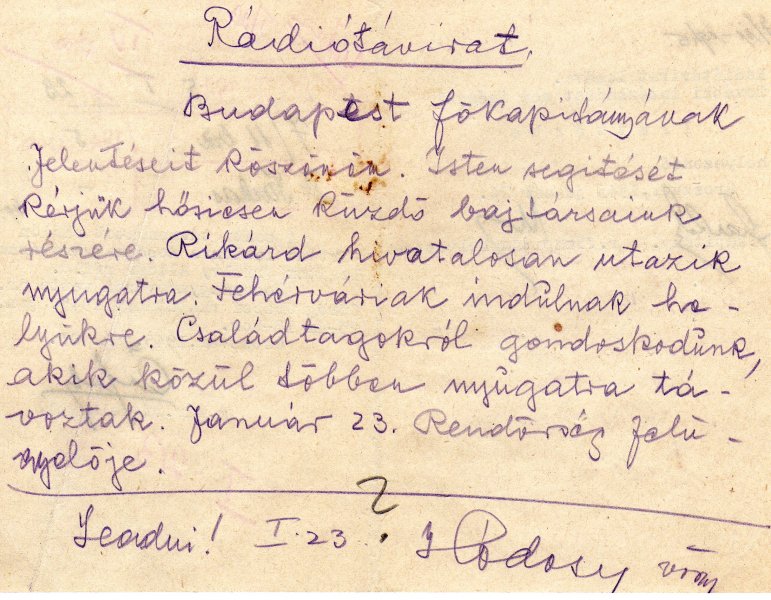 Rádiótávirat.
Budapest főkapitányának
Jelentéseit köszönöm. Isten segitését
kérjük hősiesen küzdő bajtársaink
részére. Rikárd hivatalosan utazik
nyugatra. Fehérváriak indulnak he-
lyükre. Családtagokról gondoskodunk,
akik közül többen nyugatra tá-
voztak. Január 23. Rendőrség felü-
gyelője.
Leadni! I.23